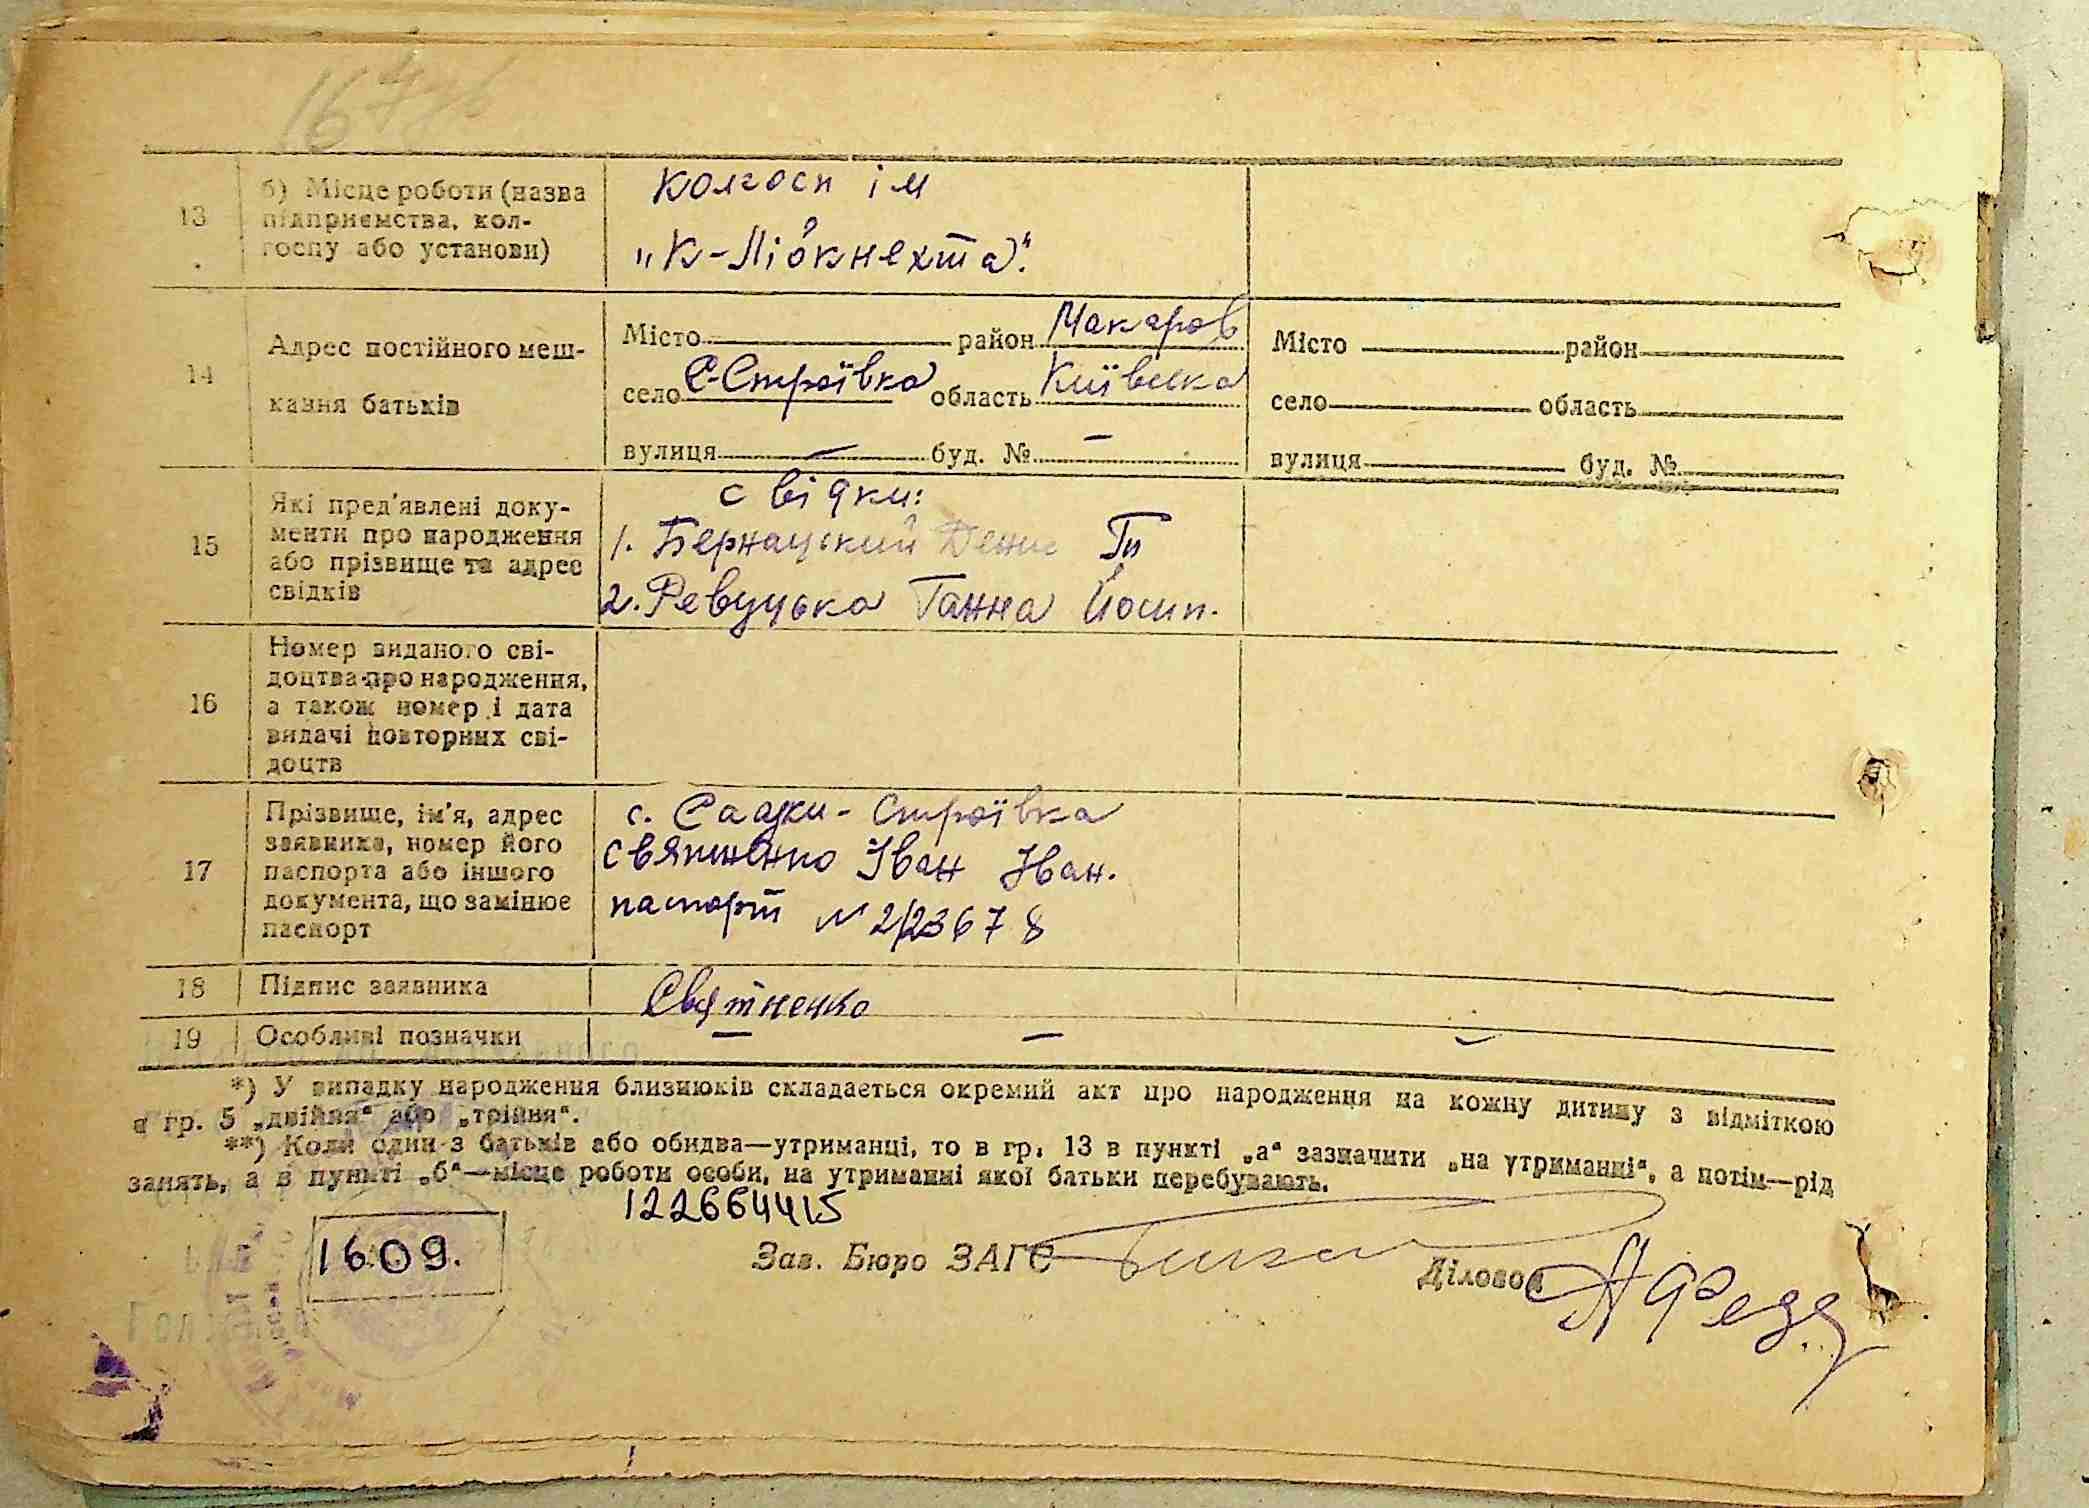 13
б) Місце роботи (назва
підприємства, кол-
госпу або установи)
колгосп ім
„К-Лібкнехта".
14
Адрес постійного меш-
кання батьків
Місто район Макаров
село С-Строївка область Київська
вулиця — буд. № —
Місто район
село область
вулиця буд. №
15
Які пред'явлені доку-
менти про народження
або прізвище та адрес
свідків
свідки:
1. Бернацький Денис Гн
2. Ревуцька Ганна Йосип.
16
Номер виданого сві-
доцтва про народження,
а також номер і дата
видачі повторних сві-
доцтв
17
Прізвище, ім'я, адрес
заявника, номер його
паспорта або іншого
документа, що замінює
паспорт
с. Садки-Строївка
Святненко Іван Іван.
паспорт № 2/23678
18
Підпис заявника
Святненко
19
Особливі позначки
— — —
*) У випадку народження близнюків складається окремий акт про народження на кожну дитину з відміткою
в гр. 5 „двійня“ або „трійня“.
**) Коли один з батьків або обидва—утриманці, то в гр. 13 в пункті „а“ зазначити „на утриманні“, а потім—рід
занять, а в пункті „б“—місце роботи особи, на утриманні якої батьки перебувають.
122664415
1609.
Зав. Бюро ЗАГС
Діловод